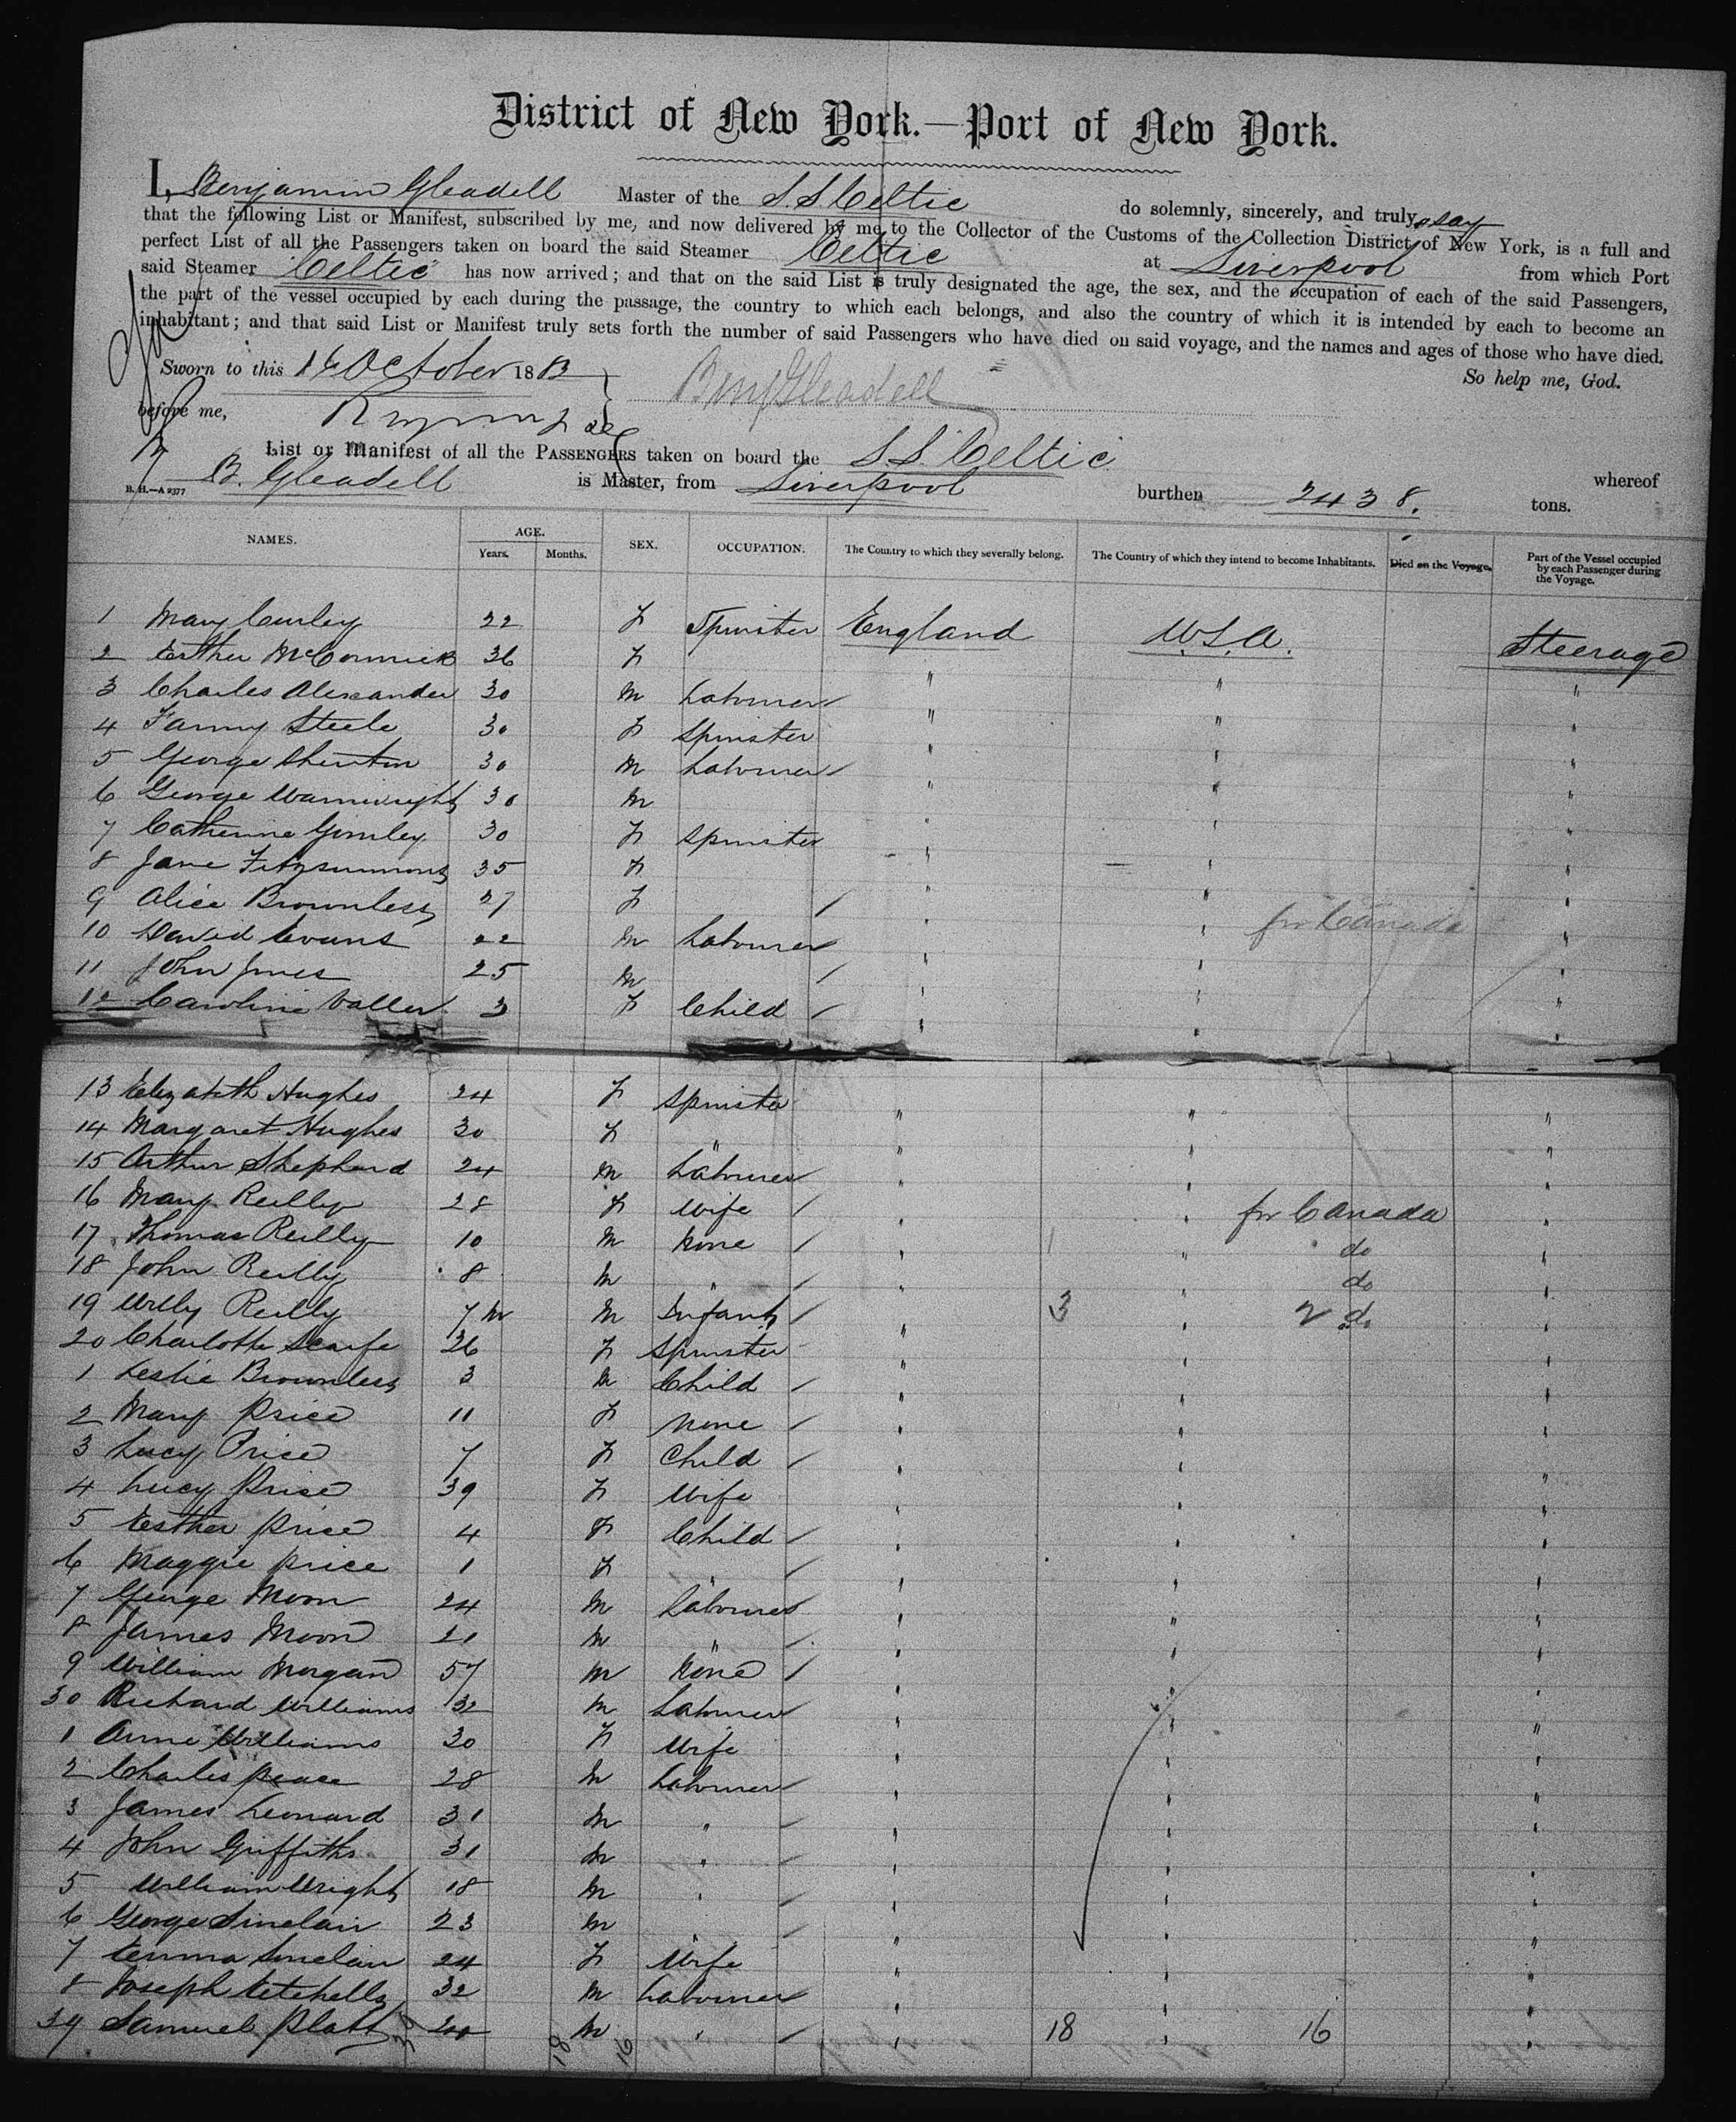 District of New York.—Port of New York.
I, Benjamin Gleadell Master of the S.S. Celtic do solemnly, sincerely, and truly say
that the following List or Manifest, subscribed by me, and now delivered by me to the Collector of the Customs of the Collection District of New York, is a full and
perfect List of all the Passengers taken on board the said Steamer Celtic at Liverpool from which Port
said Steamer Celtic has now arrived; and that on the said List is truly designated the age, the sex, and the occupation of each of the said Passengers,
the part of the vessel occupied by each during the passage, the country to which each belongs, and also the country of which it is intended by each to become an
inhabitant; and that said List or Manifest truly sets forth the number of said Passengers who have died on said voyage, and the names and ages of those who have died.
So help me, God.
Sworn to this 16 October 1883
Benj Gleadell
before me,
List or Manifest of all the PASSENGERS taken on board the S.S. Celtic whereof
B. Gleadell is Master, from Liverpool burthen 2438. tons.
B. H.—A 2377
NAMES. AGE. Years. Months. SEX. OCCUPATION. The Country to which they severally belong. The Country of which they intend to become Inhabitants. Died on the Voyage. Part of the Vessel occupied by each Passenger during the Voyage.
1 Mary Curley 22 F Spinster England U.S.A. Steerage
2 Esther McCormick 36 F " " "
3 Charles Alexander 30 M Labourer " " "
4 Fanny Steele 30 F Spinster " " "
5 George Shenton 30 M Labourer " " "
6 George Wainwright 30 M " " "
7 Catherine Gomley 30 F Spinster " " "
8 Jane Fitzsimmons 35 F " " "
9 Alice Brownless 27 F " " for Canada "
10 David Evans 22 M Labourer " " "
11 John Jones 25 M " " "
12 Caroline Valler 3 F Child " " "
13 Elizabeth Hughes 24 F Spinster " " "
14 Margaret Hughes 30 F " " " "
15 Arthur Shephard 24 M Labourer " " "
16 Mary Reilly 28 F Wife " " for Canada "
17 Thomas Reilly 10 M None " " do "
18 John Reilly 8 M " " " do "
19 Willy Reilly 7 M M Infant " 3 " 2 do "
20 Charlotte Scarfe 26 F Spinster " " "
1 Leslie Brownless 3 M Child " " "
2 Mary Price 11 F None " " "
3 Lucy Price 7 F Child " " "
4 Lucy Price 39 F Wife " " "
5 Esther Price 4 F Child " " "
6 Maggie Price 1 F " " " "
7 George Moon 24 M Labourer " " "
8 James Moon 21 M " " " "
9 William Morgan 57 M None " " "
30 Richard Williams 32 M Labourer " " "
1 Anne Williams 30 F Wife " " "
2 Charles Peace 28 M Labourer " " "
3 James Leonard 31 M " " " "
4 John Griffiths 31 M " " " "
5 William Wright 18 M " " " "
6 George Sinclair 23 M " " " "
7 Emma Sinclair 24 F Wife " " "
8 Joseph Etchells 32 M Labourer " " "
39 Samuel Platt 20 M " " 18 " 16 "
18 16